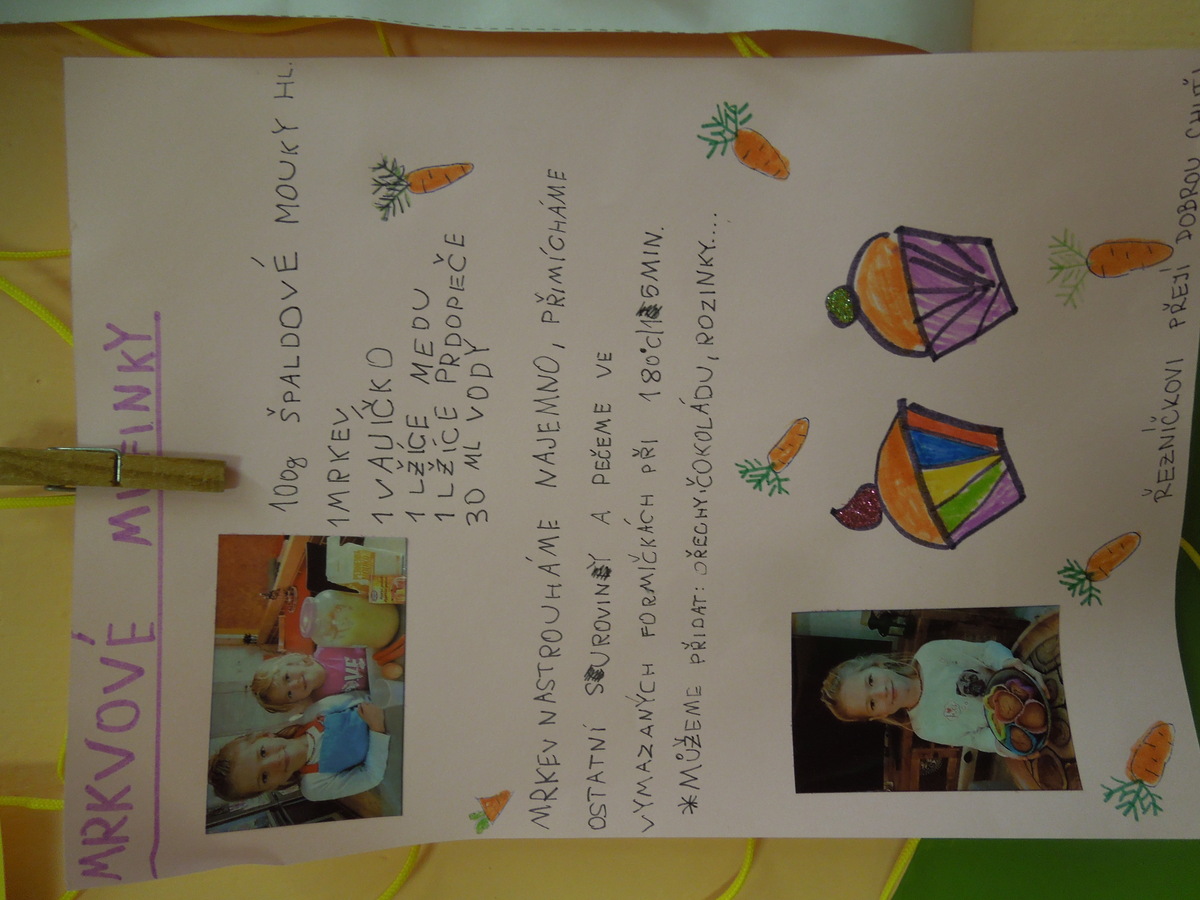 MRKVOVÉ MUFINKY
100g ŠPALDOVÉ MOUKY HL.
1 MRKEV
1 VAJÍČKO
1 LŽÍCE MEDU
1 LŽÍCE PRDOPEČE
30 ML VODY
MRKEV NASTROUHÁME NAJEMNO, PŘIMÍCHÁME
OSTATNÍ SUROVINY A PEČEME VE
VYMAZANÝCH FORMIČKÁCH PŘI 180°C 15MIN.
*MŮŽEME PŘIDAT: OŘECHY, ČOKOLÁDU, ROZINKY...
ŘEZNÍČKOVI PŘEJÍ DOBROU CHUŤ!